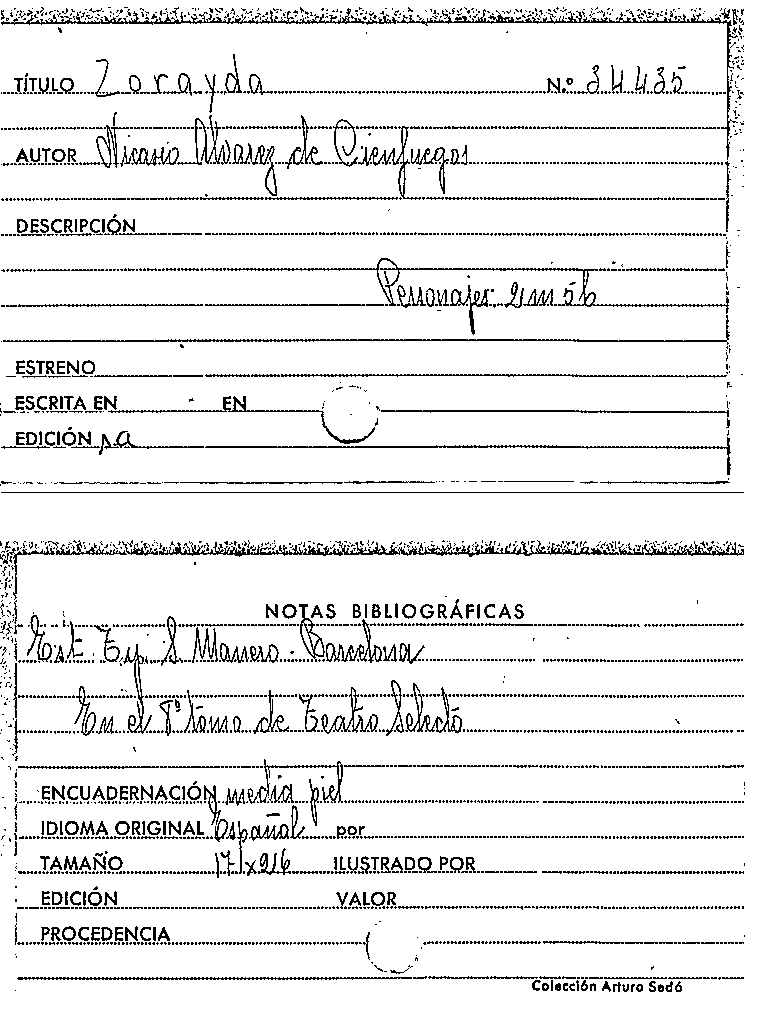 TÍTULO Zorayda N.º 34435
AUTOR Nicasio Alvarez de Cienfuegos
DESCRIPCIÓN
Personajes: 2m 5h
ESTRENO
ESCRITA EN EN
EDICIÓN
NOTAS BIBLIOGRÁFICAS
Est. Tip. S. Manero - Barcelona
En el 8º tomo de Teatro Selecto
ENCUADERNACIÓN media piel
IDIOMA ORIGINAL Español por
TAMAÑO ILUSTRADO POR
EDICIÓN VALOR
PROCEDENCIA
Colección Arturo Sedó